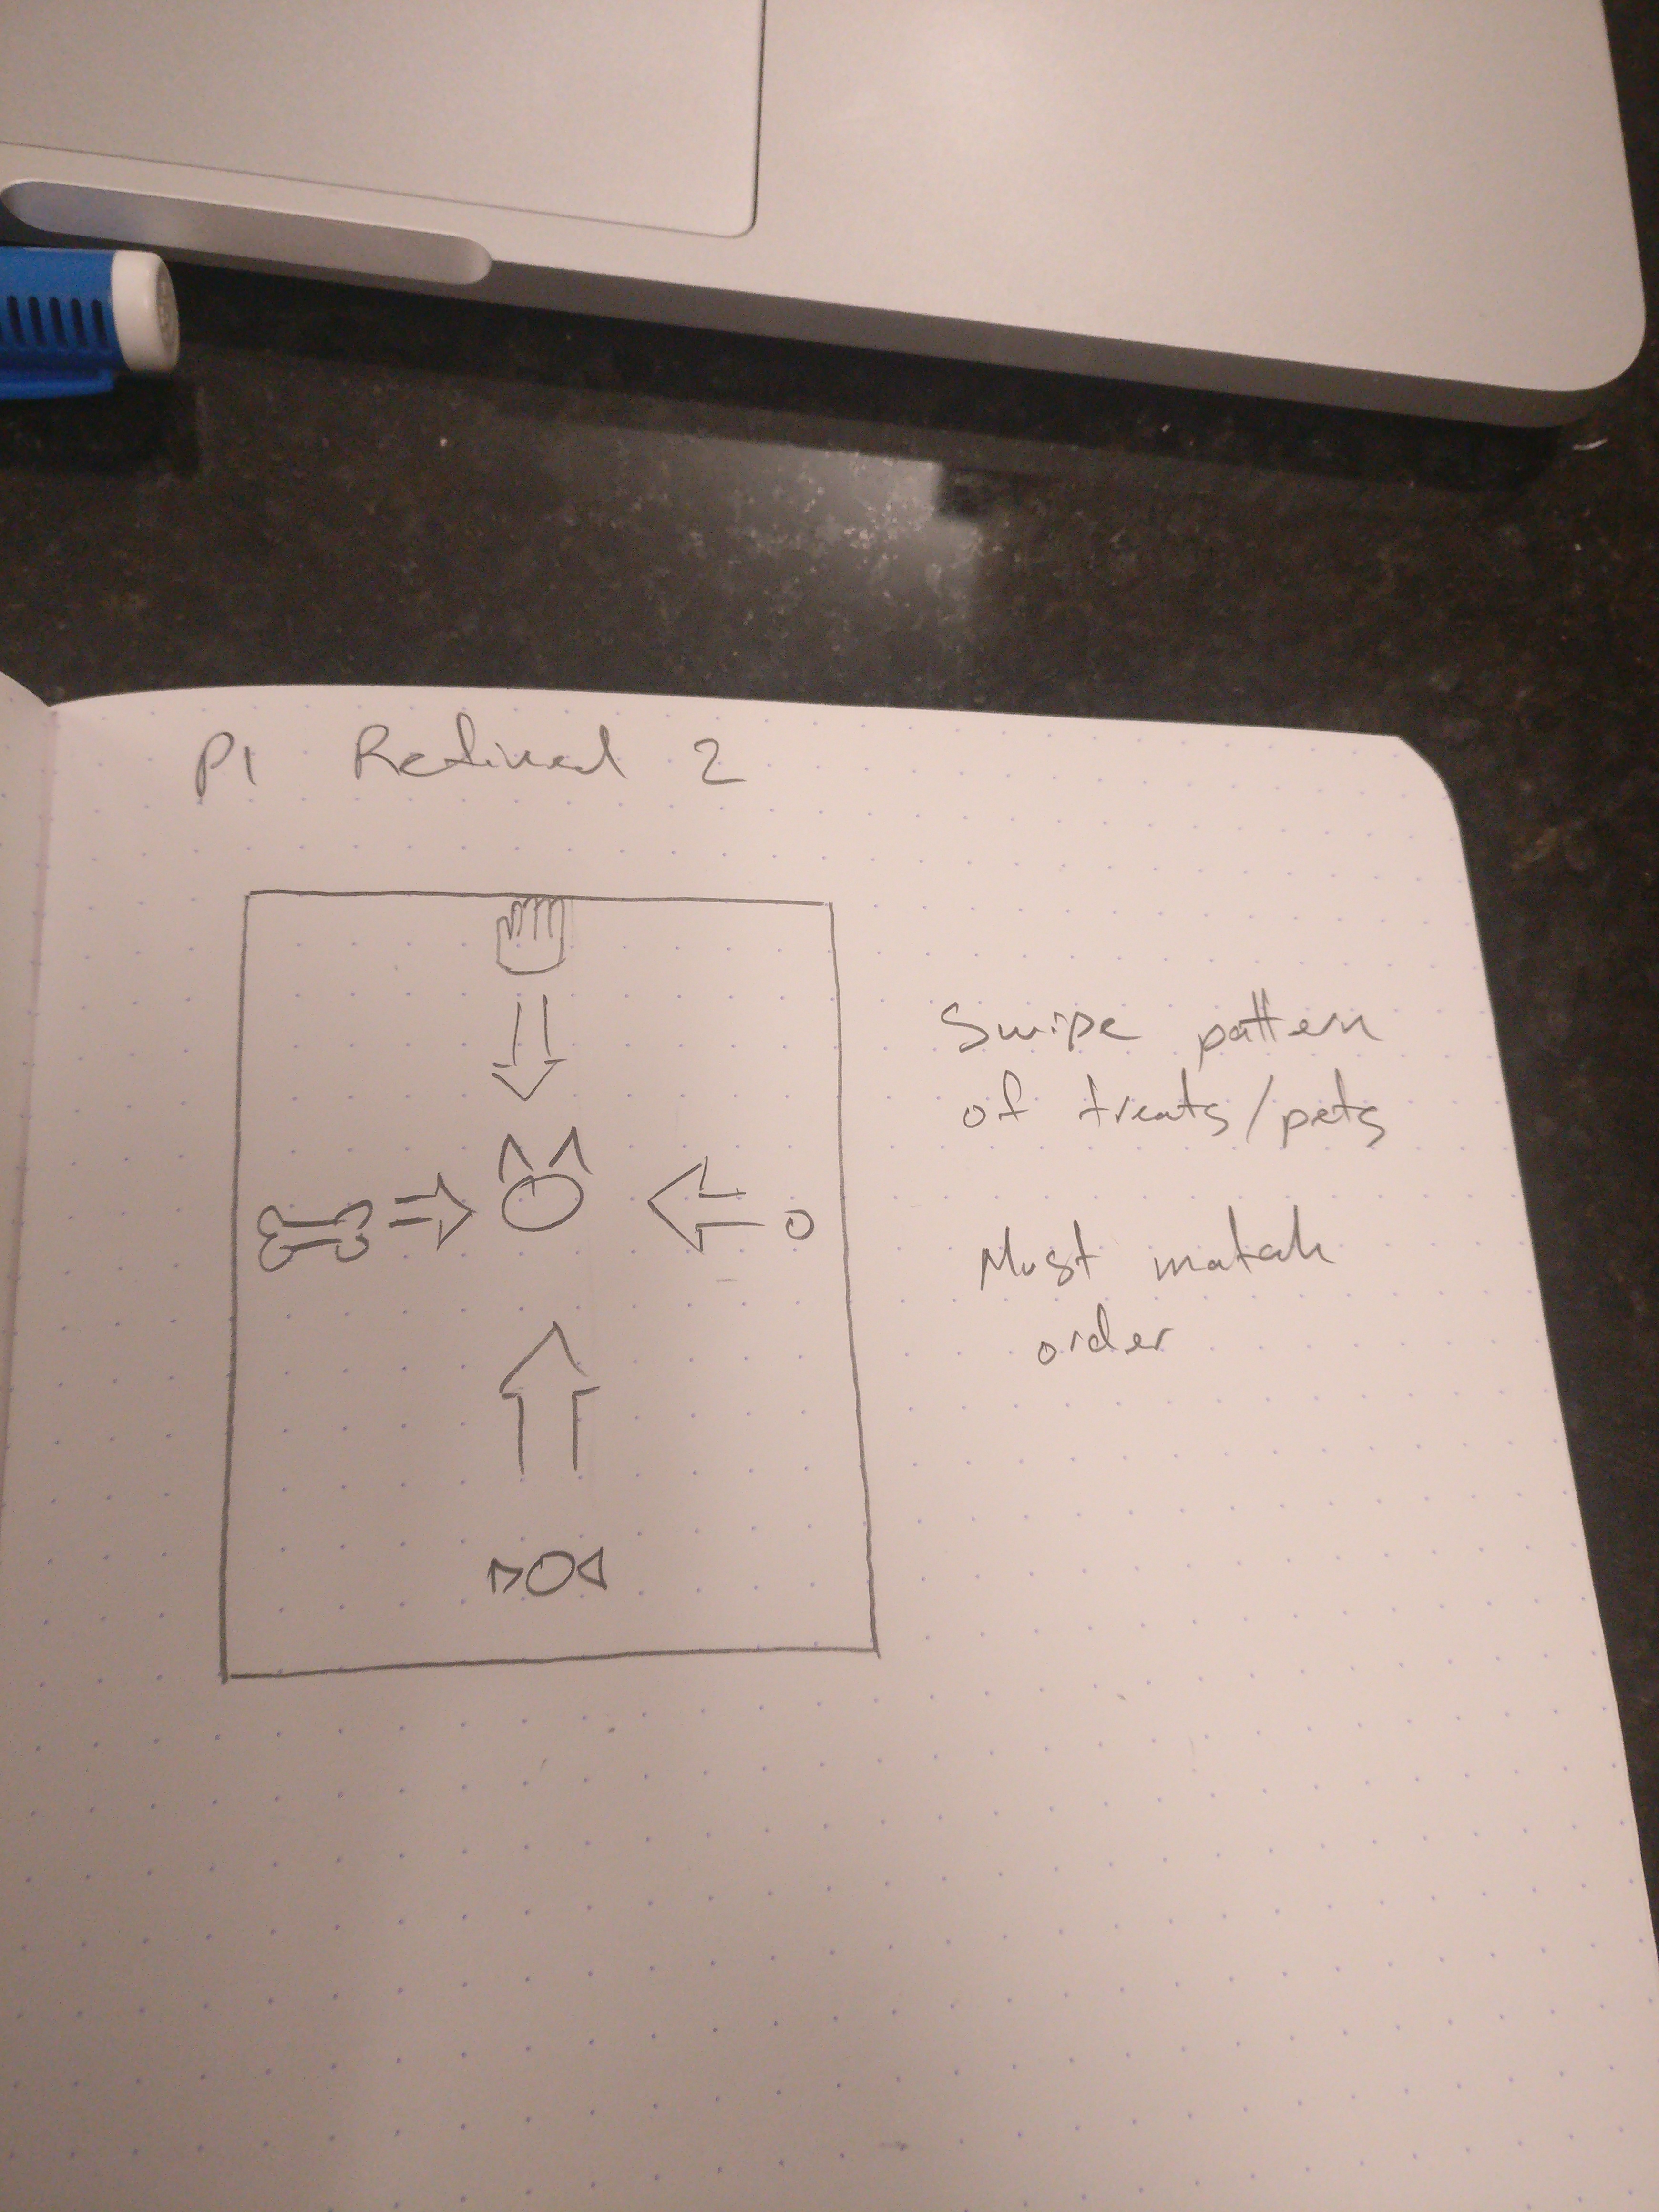 P1 Refined 2
Swipe pattern
of treats/pets
Must match
order